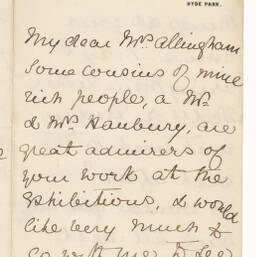 HYDE PARK.
My dear Mrs Allingham
Some cousins of mine
rich people, a Mr
& Mrs Hanbury, are
great admirers of
your work at the
Exhibitions, & would
like very much to
go with me to see